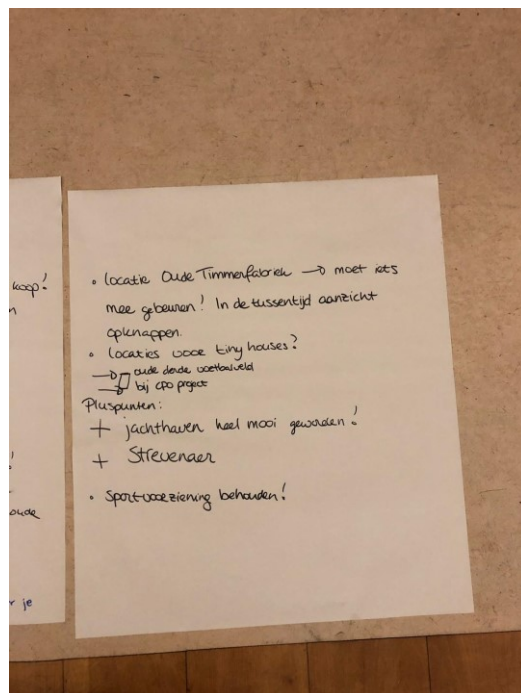 koop!
• locatie Oude Timmerfabriek → moet iets
mee gebeuren! In de tussentijd aanzicht
opknappen.
• locaties voor tiny houses?
→ oude derde voetbalveld
→ bij CPO project
Pluspunten:
+ jachthaven heel mooi geworden!
+ Strevenaer
• Sportvoorziening behouden!
oude
r je